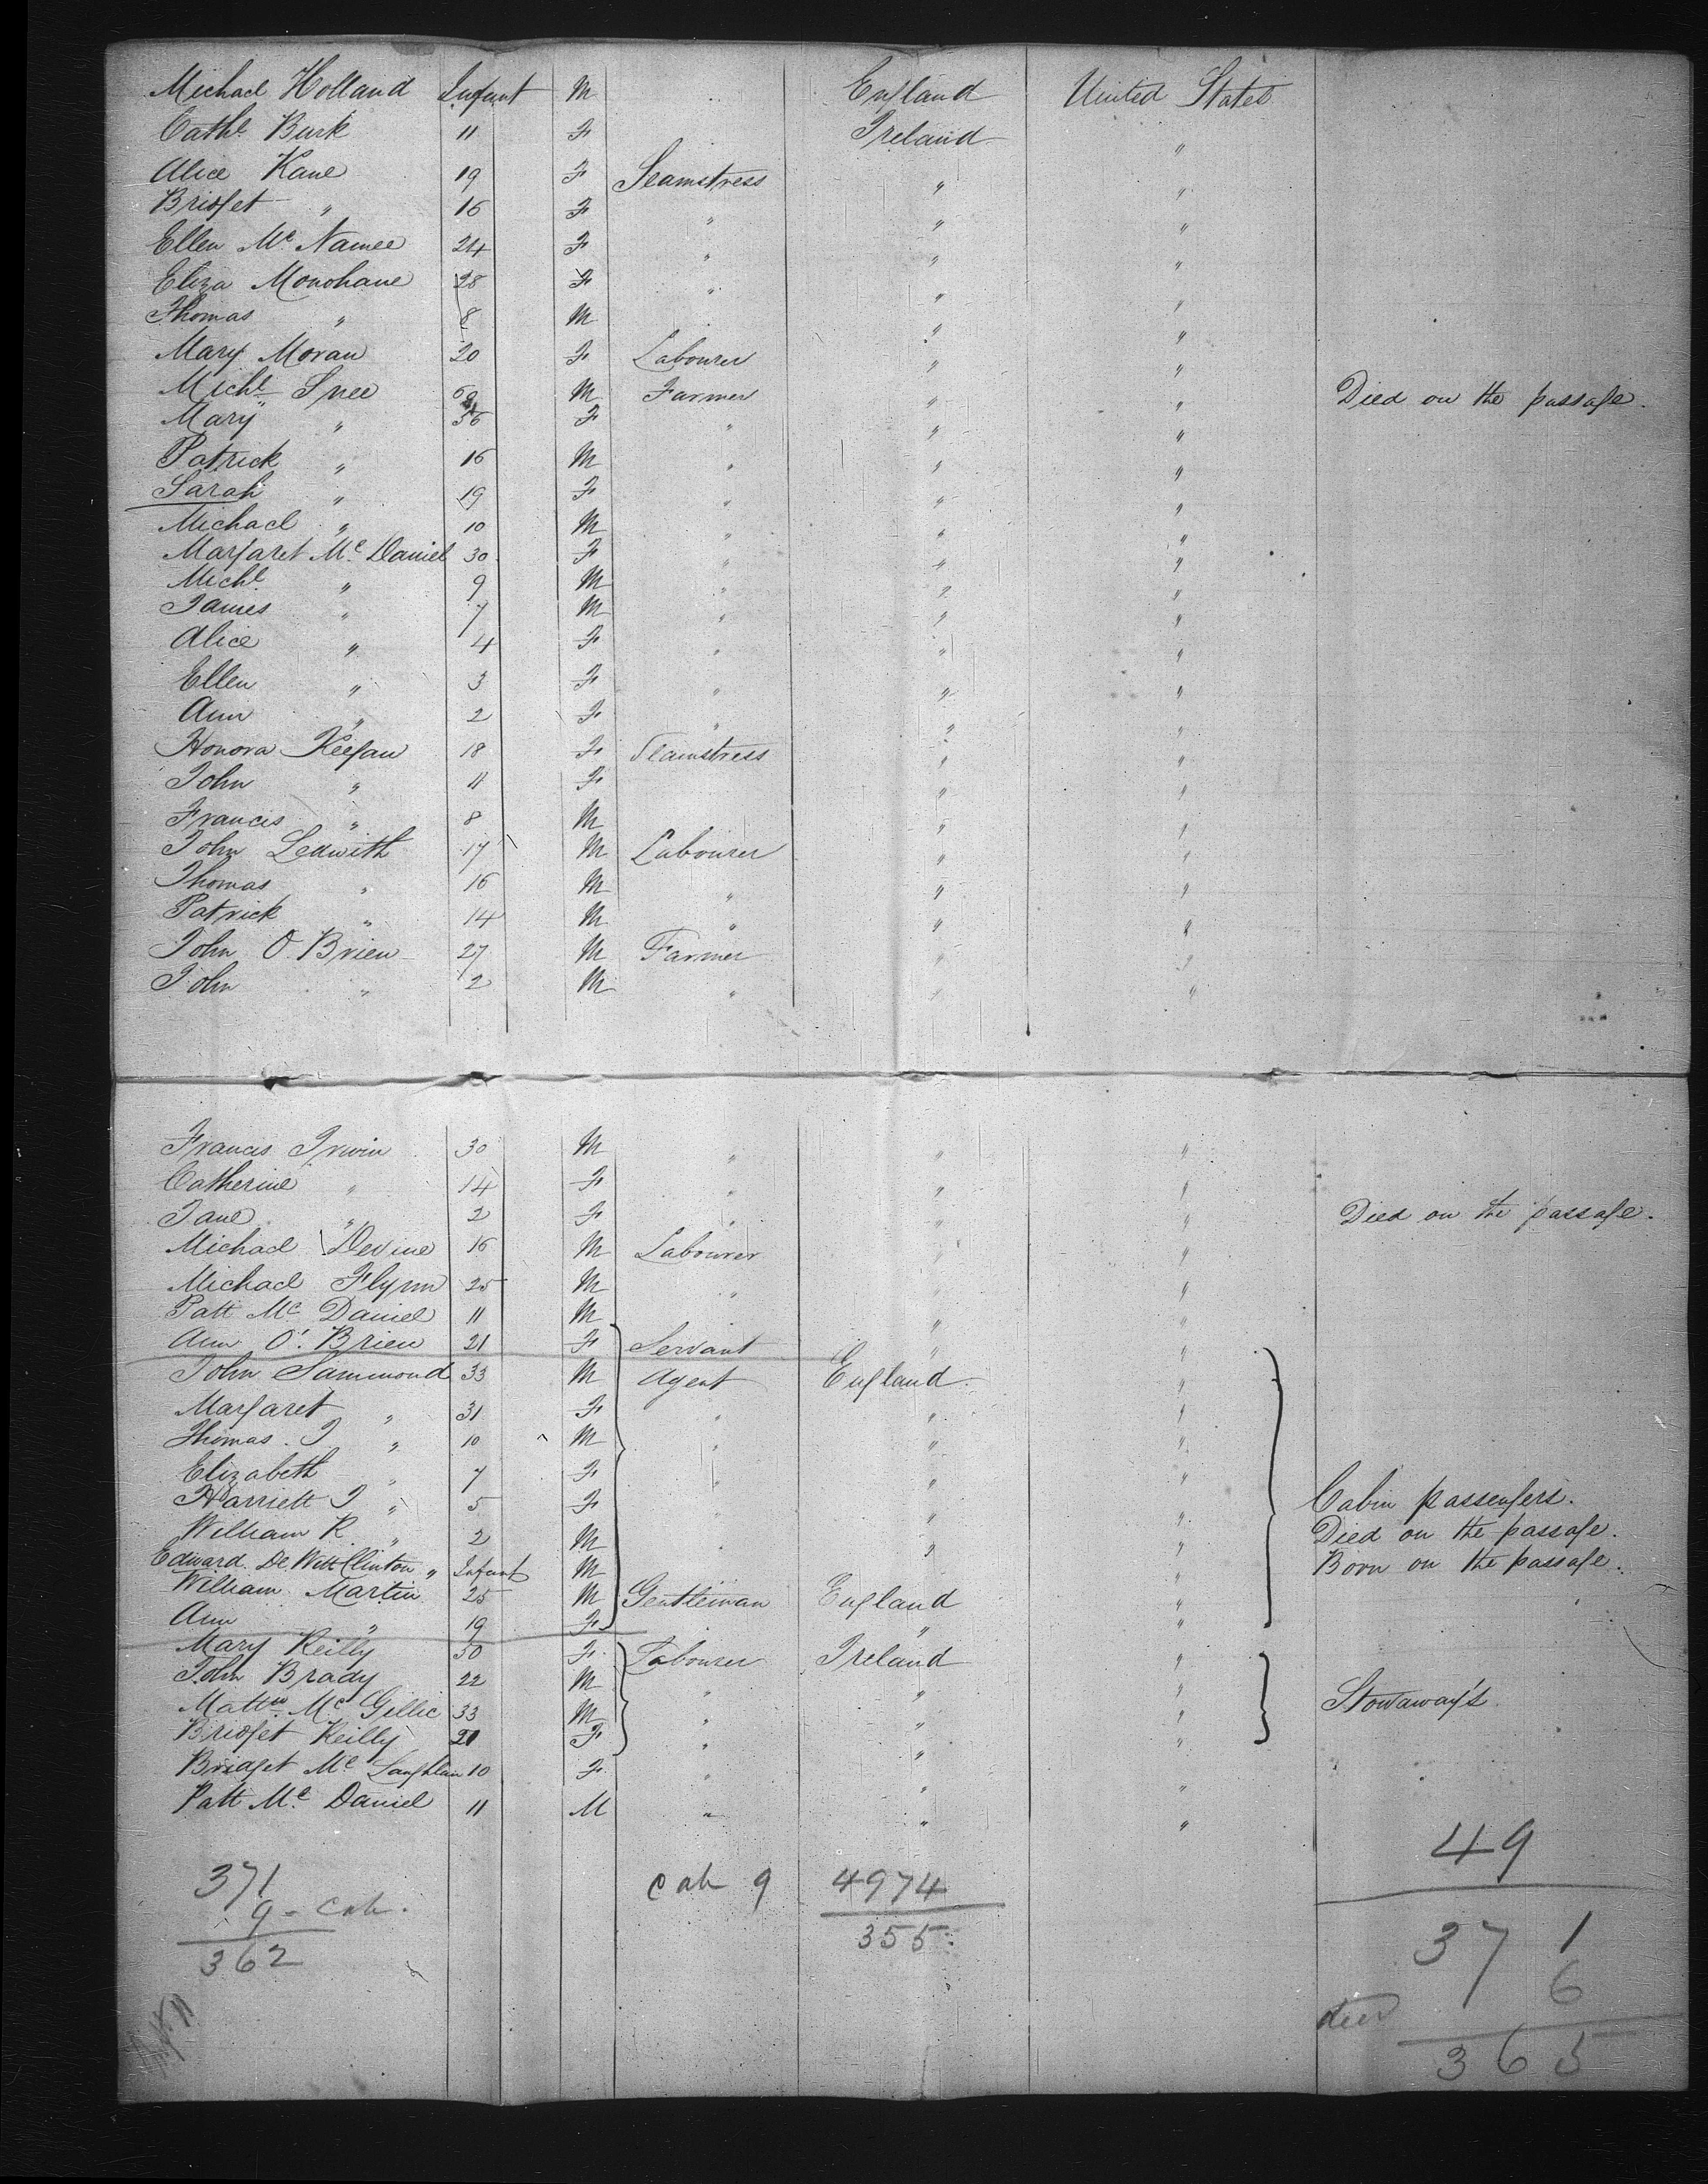 Michael Holland Infant M " England United States
Cathe Burk 11 F Ireland "
Alice Kane 19 F Seamstress " "
Bridget " 16 F " " "
Ellen Mc Namee 24 F " " "
Eliza Monohane 28 F " " "
Thomas " 8 M " "
Mary Moran 20 F Labourer " "
Michl Snee M Farmer " " Died on the passage.
Mary " 36 F " " "
Patrick " 16 M " " "
Sarah " 19 F " " "
Michael " 10 M " " "
Margaret Mc Daniel 30 F " " "
Michl " 9 M " " "
James " 7 M " " "
Alice " 4 F " " "
Ellen " 3 F " " "
Ann " 2 F " " "
Honora Keegan 18 F Seamstress " "
John " 11 F " "
Francis " 8 M " "
John Ledwith 17 M Labourer " "
Thomas " 16 M " " "
Patrick " 14 M " " "
John O Brien 27 M Farmer " "
John " 2 M " " "
Francis Irwin 30 M " " "
Catherine " 14 F " " "
Jane " 2 F " " " Died on the passage.
Michael Devine 16 M Labourer " "
Michael Flynn 25 M " " "
Patt Mc Daniel 11 M " "
Ann O'Brien 21 F Servant " "
John Sammond 33 M Agent England "
Margaret " 31 F " " "
Thomas J " 10 M " " "
Elizabeth " 7 F " " "
Harriett J " 5 F " " " Cabin passengers.
William R " 2 M " " " Died on the passage.
Edward De Witt Clinton " Infant M " Born on the passage.
William Martin 25 M Gentleman England "
Ann " 19 F " "
Mary Reilly 50 F Labourer Ireland "
John Brady 22 M " " "
Mattw Mc Gillic 33 M " " " Stowaway's
Bridget Reilly 21 F " " "
Bridget Mc Laughlan 10 F " " "
Patt Mc Daniel 11 M " " "
49
371 cab 9 4974
9 - cab. 355
362
371
6
365